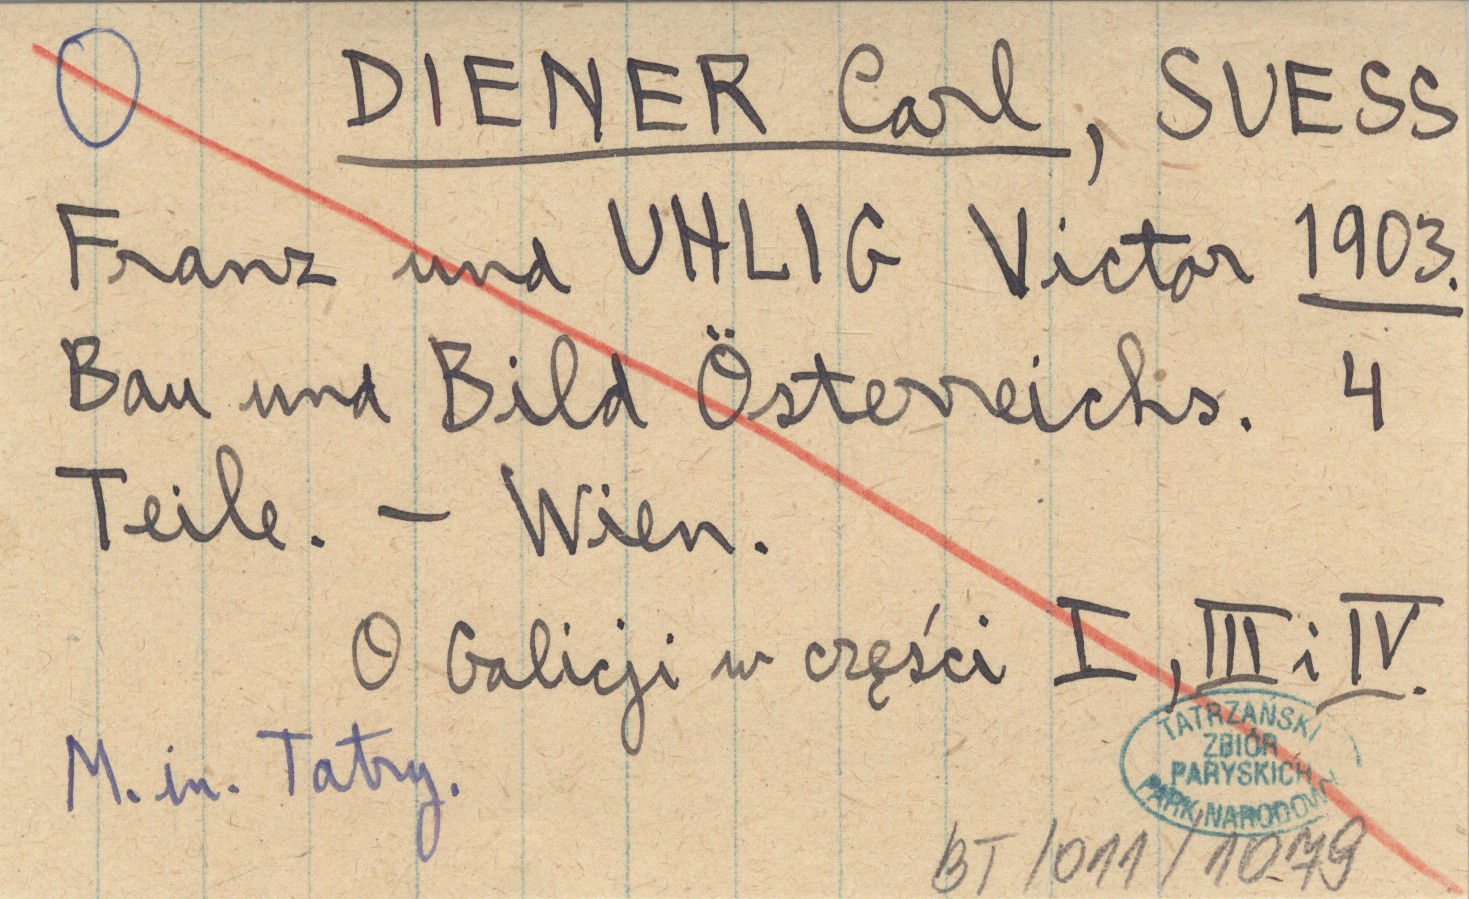 DIENER Carl, SUESS
Franz und UHLIG Victor 1903.
Bau und Bild Österreichs. 4
Teile. – Wien.
O Galicji w części I, III i IV.
M. in. Tatry.
TATRZAŃSKI
ZBIÓR
PARYSKICH
PARK NARODOWY
BT/011/1079